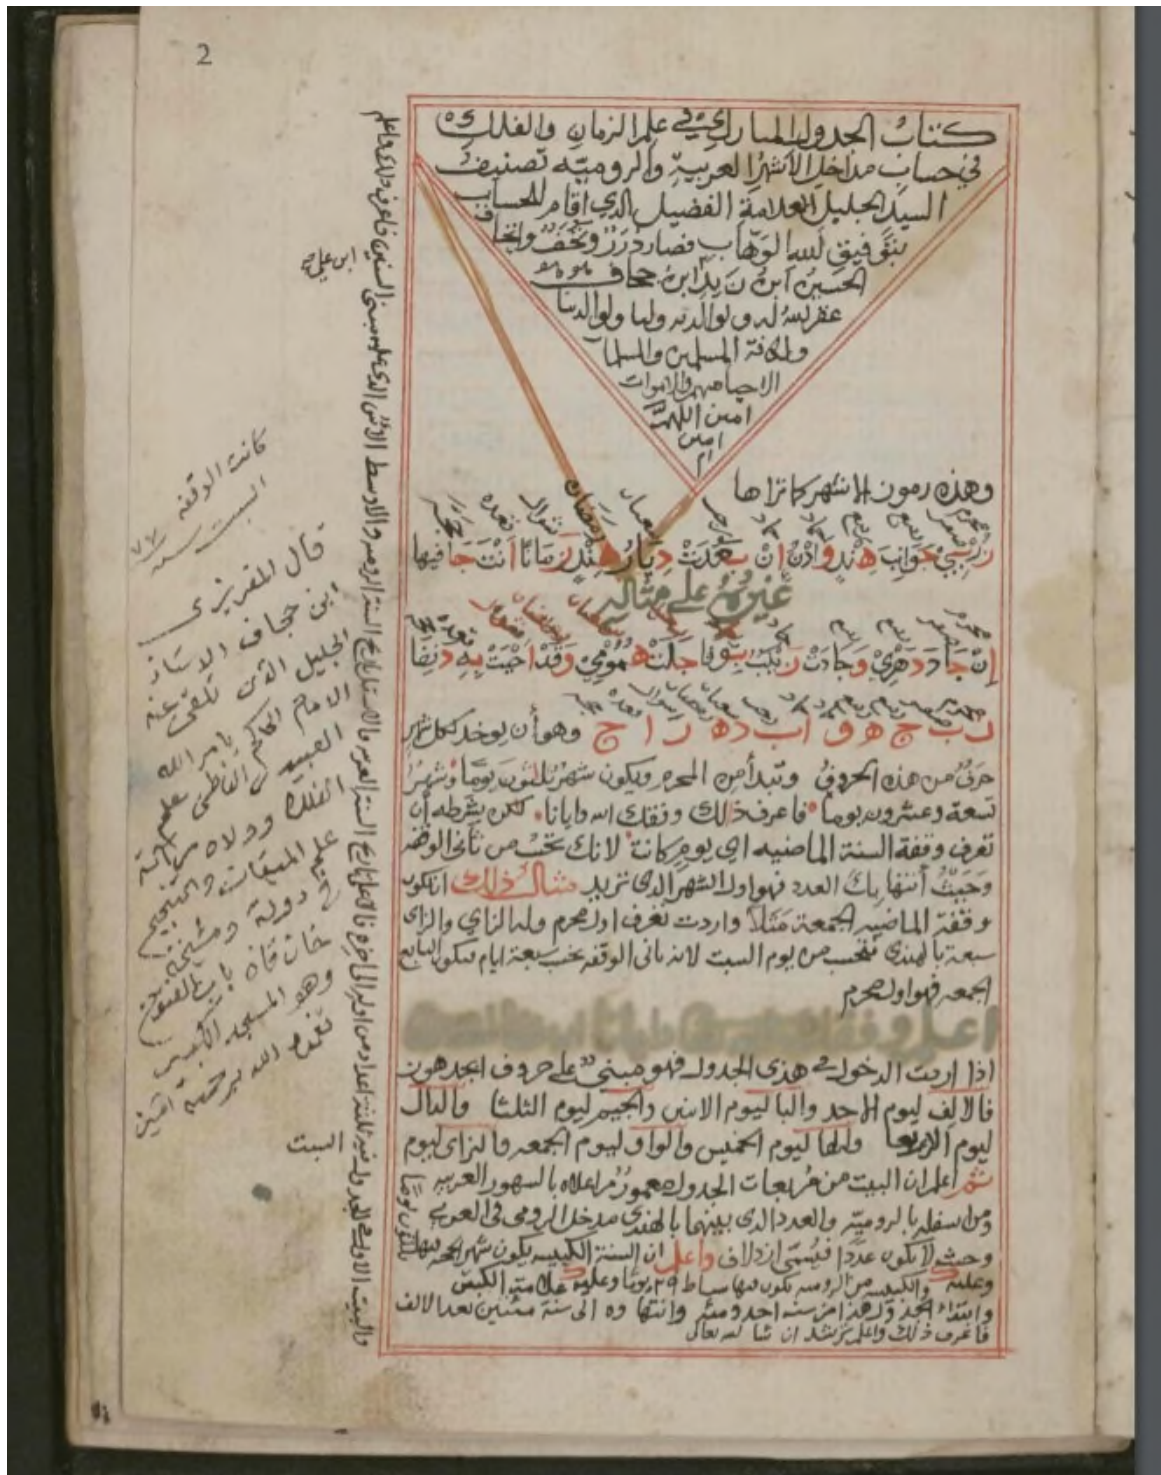 2
كتاب الجدول المبارك في علم الزمان والفلك
في حساب مداخل الأشهر العربية والرومية تصنيف
السيد الجليل العلامة الفضيل الذي اقام للحساب
بتوفيق الله الوهاب فصار درر وتحف واتحاف
الحسين ابن زيد ابن جحاف
غفر الله له ولوالديه ولنا ولوالدينا
ولكافة المسلمين والمسلمات
الاحيا منهم والاموات
امين اللهم
امين
ام
وهذه رموز الاشهر كما تراها
محرم صفر ربيع ربيع جماد جماد رجب شعبان رمضان شوال قعده حجه
زر بي جوانب هند وادن ان بعدت ديار هند زمانا انت جافيها
غيره على مثاله
محرم صفر ربيع ربيع جماد
إن جا ددهري وجادت زينب بوفا جلت همومي وقد احيت به دنفا
محرم صفر ربيع ربيع جماد جماد رجب شعبان رمضان شوال قعده حجه
ز ب ج ه و ا ب د ه ز ا ج وهو أن يوخد لكل شهر
حرف من هذه الحروف وتبدأ من المحرم ويكون شهر ثلثون يوما وشهرا
تسعة وعشرون يوما فاعرف ذلك وفقك الله وايانا لكن بشرطه أن
تعرف وقفة السنة الماضيه اي يوم كانت لانك تحسب من ثاني الوقفه
وحيث أنتها بك العدد فهو اول الشهر الذي تريد مثال ذلك ان تكون
وقفة الماضيه الجمعة مثلا واردت تعرف اول محرم وله الزاي والزاى
سبعة بالهندي فتحسب من يوم السبت لانه ثاني الوقفه تحسب سبعة ايام فيكون السابع
الجمعه فهو اول محرم
اعلم وفقك الله
اذا اردت الدخول في هذي الجدول فهو مبني على حروف ابجدهوز
فالالف ليوم الاحد والبا ليوم الاثنين والجيم ليوم الثلثا والدال
ليوم الاربعا والها ليوم الخميس والواو ليوم الجمعه والزاى ليوم
السبت
ثم اعلم ان البيت من مربعات الجدول معمور من اعلاه بالشهور العربيه
ومن اسفله بالروميه والعدد الذي بينهما بالهندي مدخل الرومي في العربي
وحيث لا يكون عددا فيسمى ازدلاف واعلم ان السنة الكبيسه يكون شهر الحجه فيها
ثلثون يوما
وعليه ك والكبيسه من الروميه يكون فيها سباط ٢٩ يوما وعليه علامة الكبس
وابتداء الجدول هذا من سنه احد ومئه وانتهاوه الى سنة مئتين بعد الالف
فاعرف ذلك واعلم ترشد ان شا الله تعالى
والبيت الاول في الجدول فيه ثلثة اعداد من اوله الى اخره فالاعلى تاريخ السنة العربيه والاسفل تاريخ السنة الروميه والاوسط الاس الذي عليه مبنى السنين فاعرف ذلك واعلم
ابن علي
كانت الوقفه
السبت سنه ٧٧
قال المقريزي
ابن جحاف الاستاذ
الجليل الذي تلقى عنه
الامام الحاكم بامر الله
العبيدي الفاطمي علم
الفلك وولاه مرتبة
علم الميقات والتنجيم
في دولته ومشيخة
خان قاه باب الفتوح
وهو المسجد الانيس
تغمده الله برحمته امين